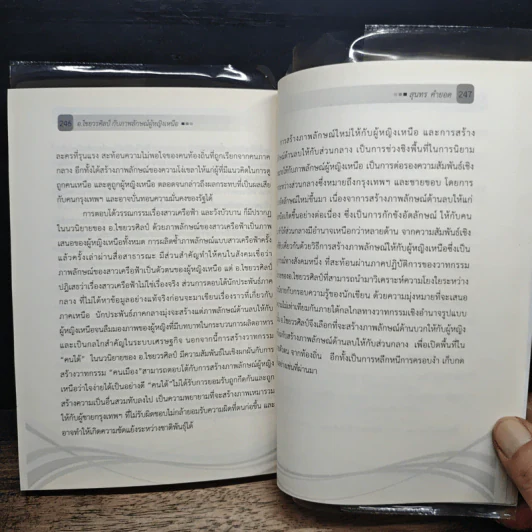 246 อ.ไชยวรศิลป์ กับภาพลักษณ์ผู้หญิงเหนือ
ละครที่รุนแรง สะท้อนความไม่พอใจของคนท้องถิ่นที่ถูกเรียกจากคนภาค
กลาง อีกทั้งได้สร้างภาพลักษณ์ของความโง่เขลาให้แก่ผู้ที่มีแนวคิดในการดู
ถูกคนเหนือ และดูถูกผู้หญิงเหนือ ตลอดจนกล่าวถึงผลกระทบที่เป็นผลเสีย
กับคนกรุงเทพฯ และอาจบั่นทอนความมั่นคงของรัฐได้
การตอบโต้วรรณกรรมเรื่องสาวเครือฟ้า และวังบัวบาน ก็มีปรากฏ
ในนวนิยายของ อ.ไชยวรศิลป์ ด้วยภาพลักษณ์ของสาวเครือฟ้าเป็นภาพ
เสนอของผู้หญิงเหนือทั้งหมด การผลิตซ้ำภาพลักษณ์แบบสาวเครือฟ้าครั้ง
แล้วครั้งเล่าผ่านสื่อสาธารณะ มีส่วนสำคัญทำให้คนในสังคมเชื่อว่า
ภาพลักษณ์ของสาวเครือฟ้าเป็นตัวตนของผู้หญิงเหนือ แต่ อ.ไชยวรศิลป์
ปฏิเสธว่าเรื่องสาวเครือฟ้าไม่ใช่เรื่องจริง ส่วนการตอบโต้นักประพันธ์ภาค
กลาง ที่ไม่ได้หาข้อมูลอย่างแท้จริงก่อนจะมาเขียนเรื่องราวที่เกี่ยวกับ
ภาคเหนือ นักประพันธ์ภาคกลางมุ่งจะสร้างแต่ภาพลักษณ์ด้านลบให้กับ
ผู้หญิงเหนือจนลืมมองภาพของผู้หญิงที่มีบทบาทในกระบวนการผลิตอาหาร
และเป็นกลไกสำคัญในระบบเศรษฐกิจ นอกจากนี้การสร้างวาทกรรม
"คนใต้" ในนวนิยายของ อ.ไชยวรศิลป์ มีความสัมพันธ์ในเชิงแกนกับการ
สร้างวาทกรรม "คนเมือง"สามารถตอบโต้กับการสร้างภาพลักษณ์ผู้หญิง
เหนือว่าใจง่ายได้เป็นอย่างดี "คนใต้"ไม่ได้รับการยอมรับถูกกีดกันและถูก
สร้างความเป็นอื่นสวมทับลงไป เป็นความพยายามที่จะสร้างภาพเหมารวม
ให้กับผู้ชายกรุงเทพฯ ที่ไม่รับผิดชอบไม่กล้ายอมรับความผิดที่ตนก่อขึ้น และ
อาจทำให้เกิดความขัดแย้งระหว่างชาติพันธุ์ได้
สุนทร คำยอด 247
การสร้างภาพลักษณ์ใหม่ให้กับผู้หญิงเหนือ และการสร้าง
ลักษณ์ด้านลบให้กับส่วนกลาง เป็นการช่วงชิงพื้นที่ในการนิยาม
ให้กับภาพลักษณ์ผู้หญิงเหนือ เป็นการต่อรองความสัมพันธ์เชิง
ส่วนกลางซึ่งหมายถึงกรุงเทพฯ และชายชอบ โดยการ
ลักษณ์ใหม่ขึ้นมา เนื่องจากการสร้างภาพลักษณ์ด้านลบให้แก่
เกิดขึ้นอย่างต่อเนื่อง ซึ่งเป็นการกักขังอัตลักษณ์ ให้กับคน
ให้ส่วนกลางมีอำนาจเหนือกว่าหลายด้าน จากความสัมพันธ์เชิง
เดียวกันด้วยวิธีการสร้างภาพลักษณ์ให้กับผู้หญิงเหนือซึ่งเป็น
ทางสังคมหนึ่ง ที่สะท้อนผ่านภาคปฏิบัติการของวาทกรรม
ของอ.ไชยวรศิลป์ที่สามารถนำมาวิเคราะห์ความโยงใยระหว่าง
กับกรอบความรู้ของนักเขียน ด้วยความมุ่งหมายที่จะเสนอ
ไม่เท่าเทียมกันภายใต้กลไกลทางวาทกรรมเชิงอำนาจรูปแบบ
อ.ไชยวรศิลป์จึงเลือกที่จะสร้างภาพลักษณ์ด้านบวกให้กับผู้หญิง
สร้างภาพลักษณ์ด้านลบให้กับส่วนกลาง เพื่อเปิดพื้นที่ใน
ตัวตน จากท้องถิ่น อีกทั้งเป็นการหลีกหนีการครอบงำ เก็บกด
เช่นที่ผ่านมา